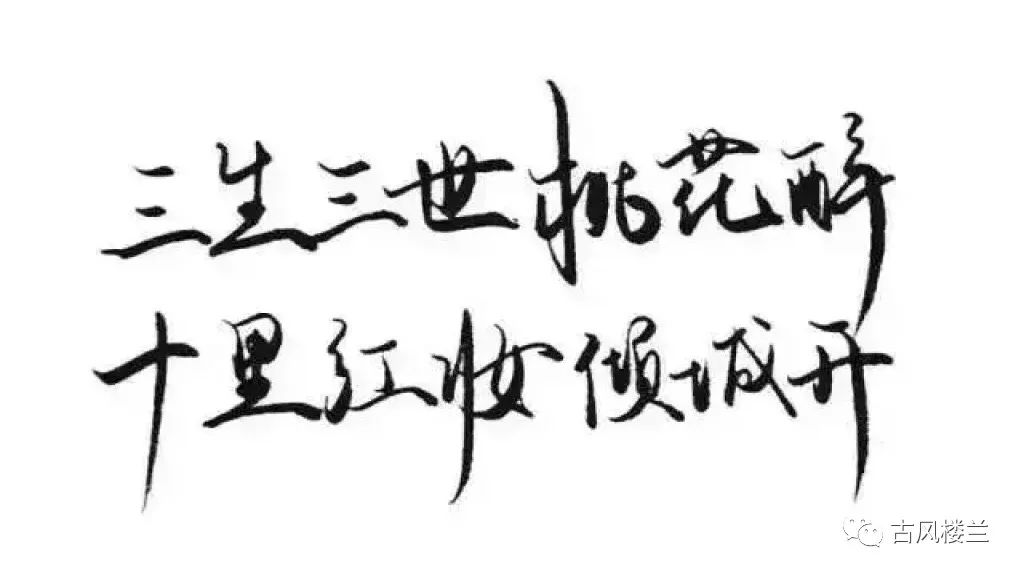 三生三世桃花醉
十里红妆倾城开
古风楼兰